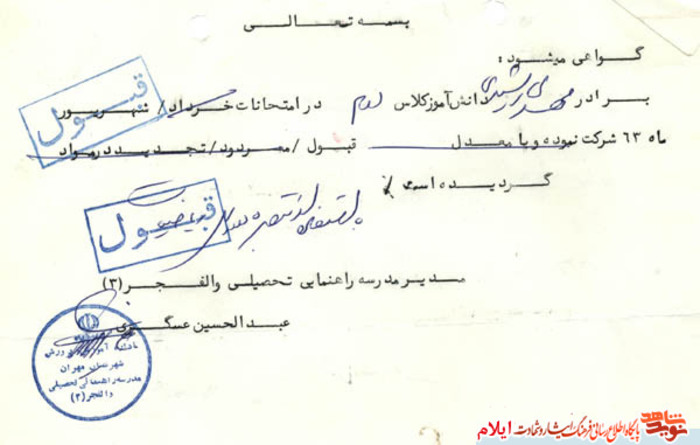 بسمه تعالی
گواهی میشود:
برادر مهدی رشیدی دانش‌آموز کلاس دوم در امتحانات خرداد/ شهریور
ماه ۶۳ شرکت نموده و با معدل قبول/ مردود/ تجدید در مواد
گردیده است
قبول
با استفاده از تبصره
قبول
مدیر مدرسه راهنمایی تحصیلی والفجر (۳)
عبدالحسین عسگری
شهرستان مهران
مدرسه راهنمائی تحصیلی
والفجر (۳)
نوید شاهد
پایگاه اطلاع رسانی فرهنگ ایثار و شهادت ایلام